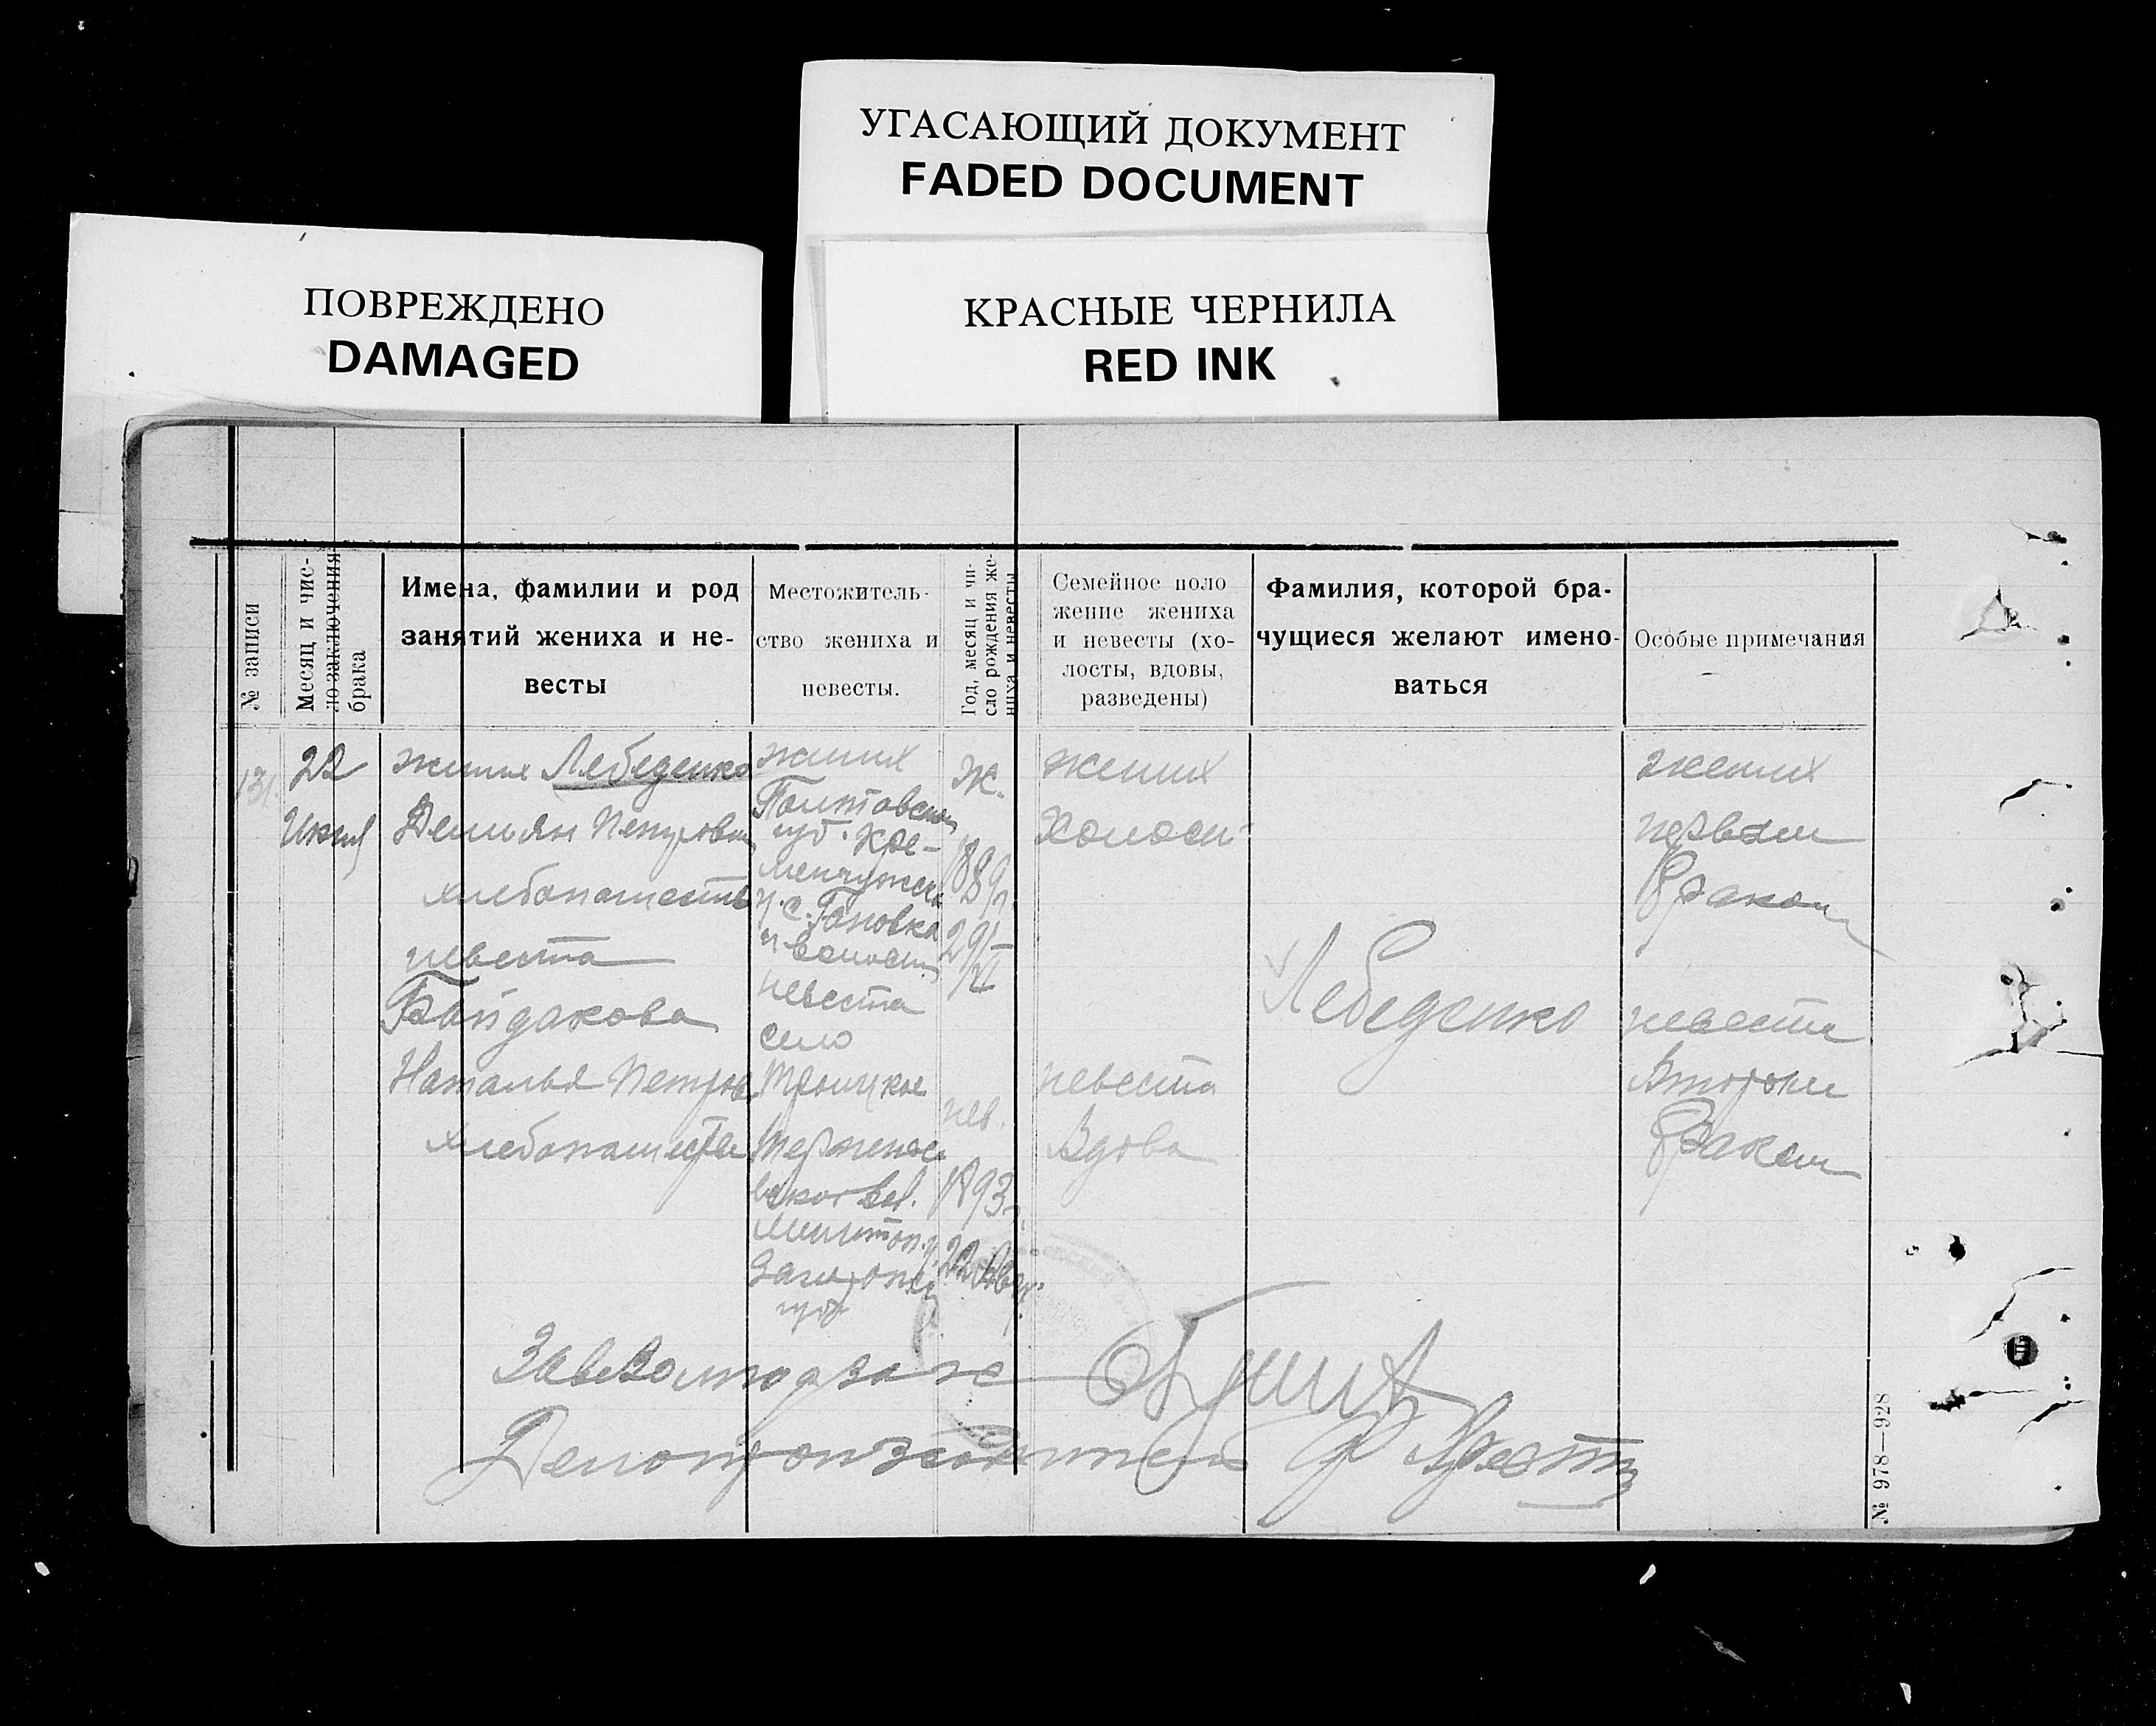 УГАСАЮЩИЙ ДОКУМЕНТ
FADED DOCUMENT
ПОВРЕЖДЕНО
DAMAGED
КРАСНЫЕ ЧЕРНИЛА
RED INK
№ записи
Месяц и чис-
ло заключения
брака
Имена, фамилии и род
занятий жениха и не-
весты
Местожитель-
ство жениха и
невесты.
Год, месяц и чи-
сло рождения же-
ниха и невесты
Семейное поло
жение жениха
и невесты (хо-
лосты, вдовы,
разведены)
Фамилия, которой бра-
чущиеся желают имено-
ваться
Особые примечания
131.
22
жених Лебеденко
Демьян Петрович
хлебопашеств
невеста
Байдакова
Наталья Петров
жених
Полтавской
губ. Кре-
менчужск
у. с.
и волости
невеста
село
Троицкое
вской вол.
Мелитоп. у.
губ
Ж.
1889г.
29/VI
нев.
1893г.
22 Авг.
жених
Холост
невеста
Вдова
Лебеденко
жених
первым
браком
невеста
Вторым
браком
Делопроизводитель
№ 978—928